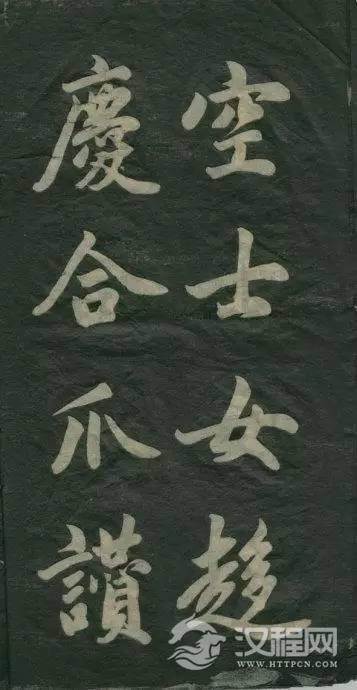 空士女趍
慶合爪讃
汉程网
WWW.HTTPCN.COM